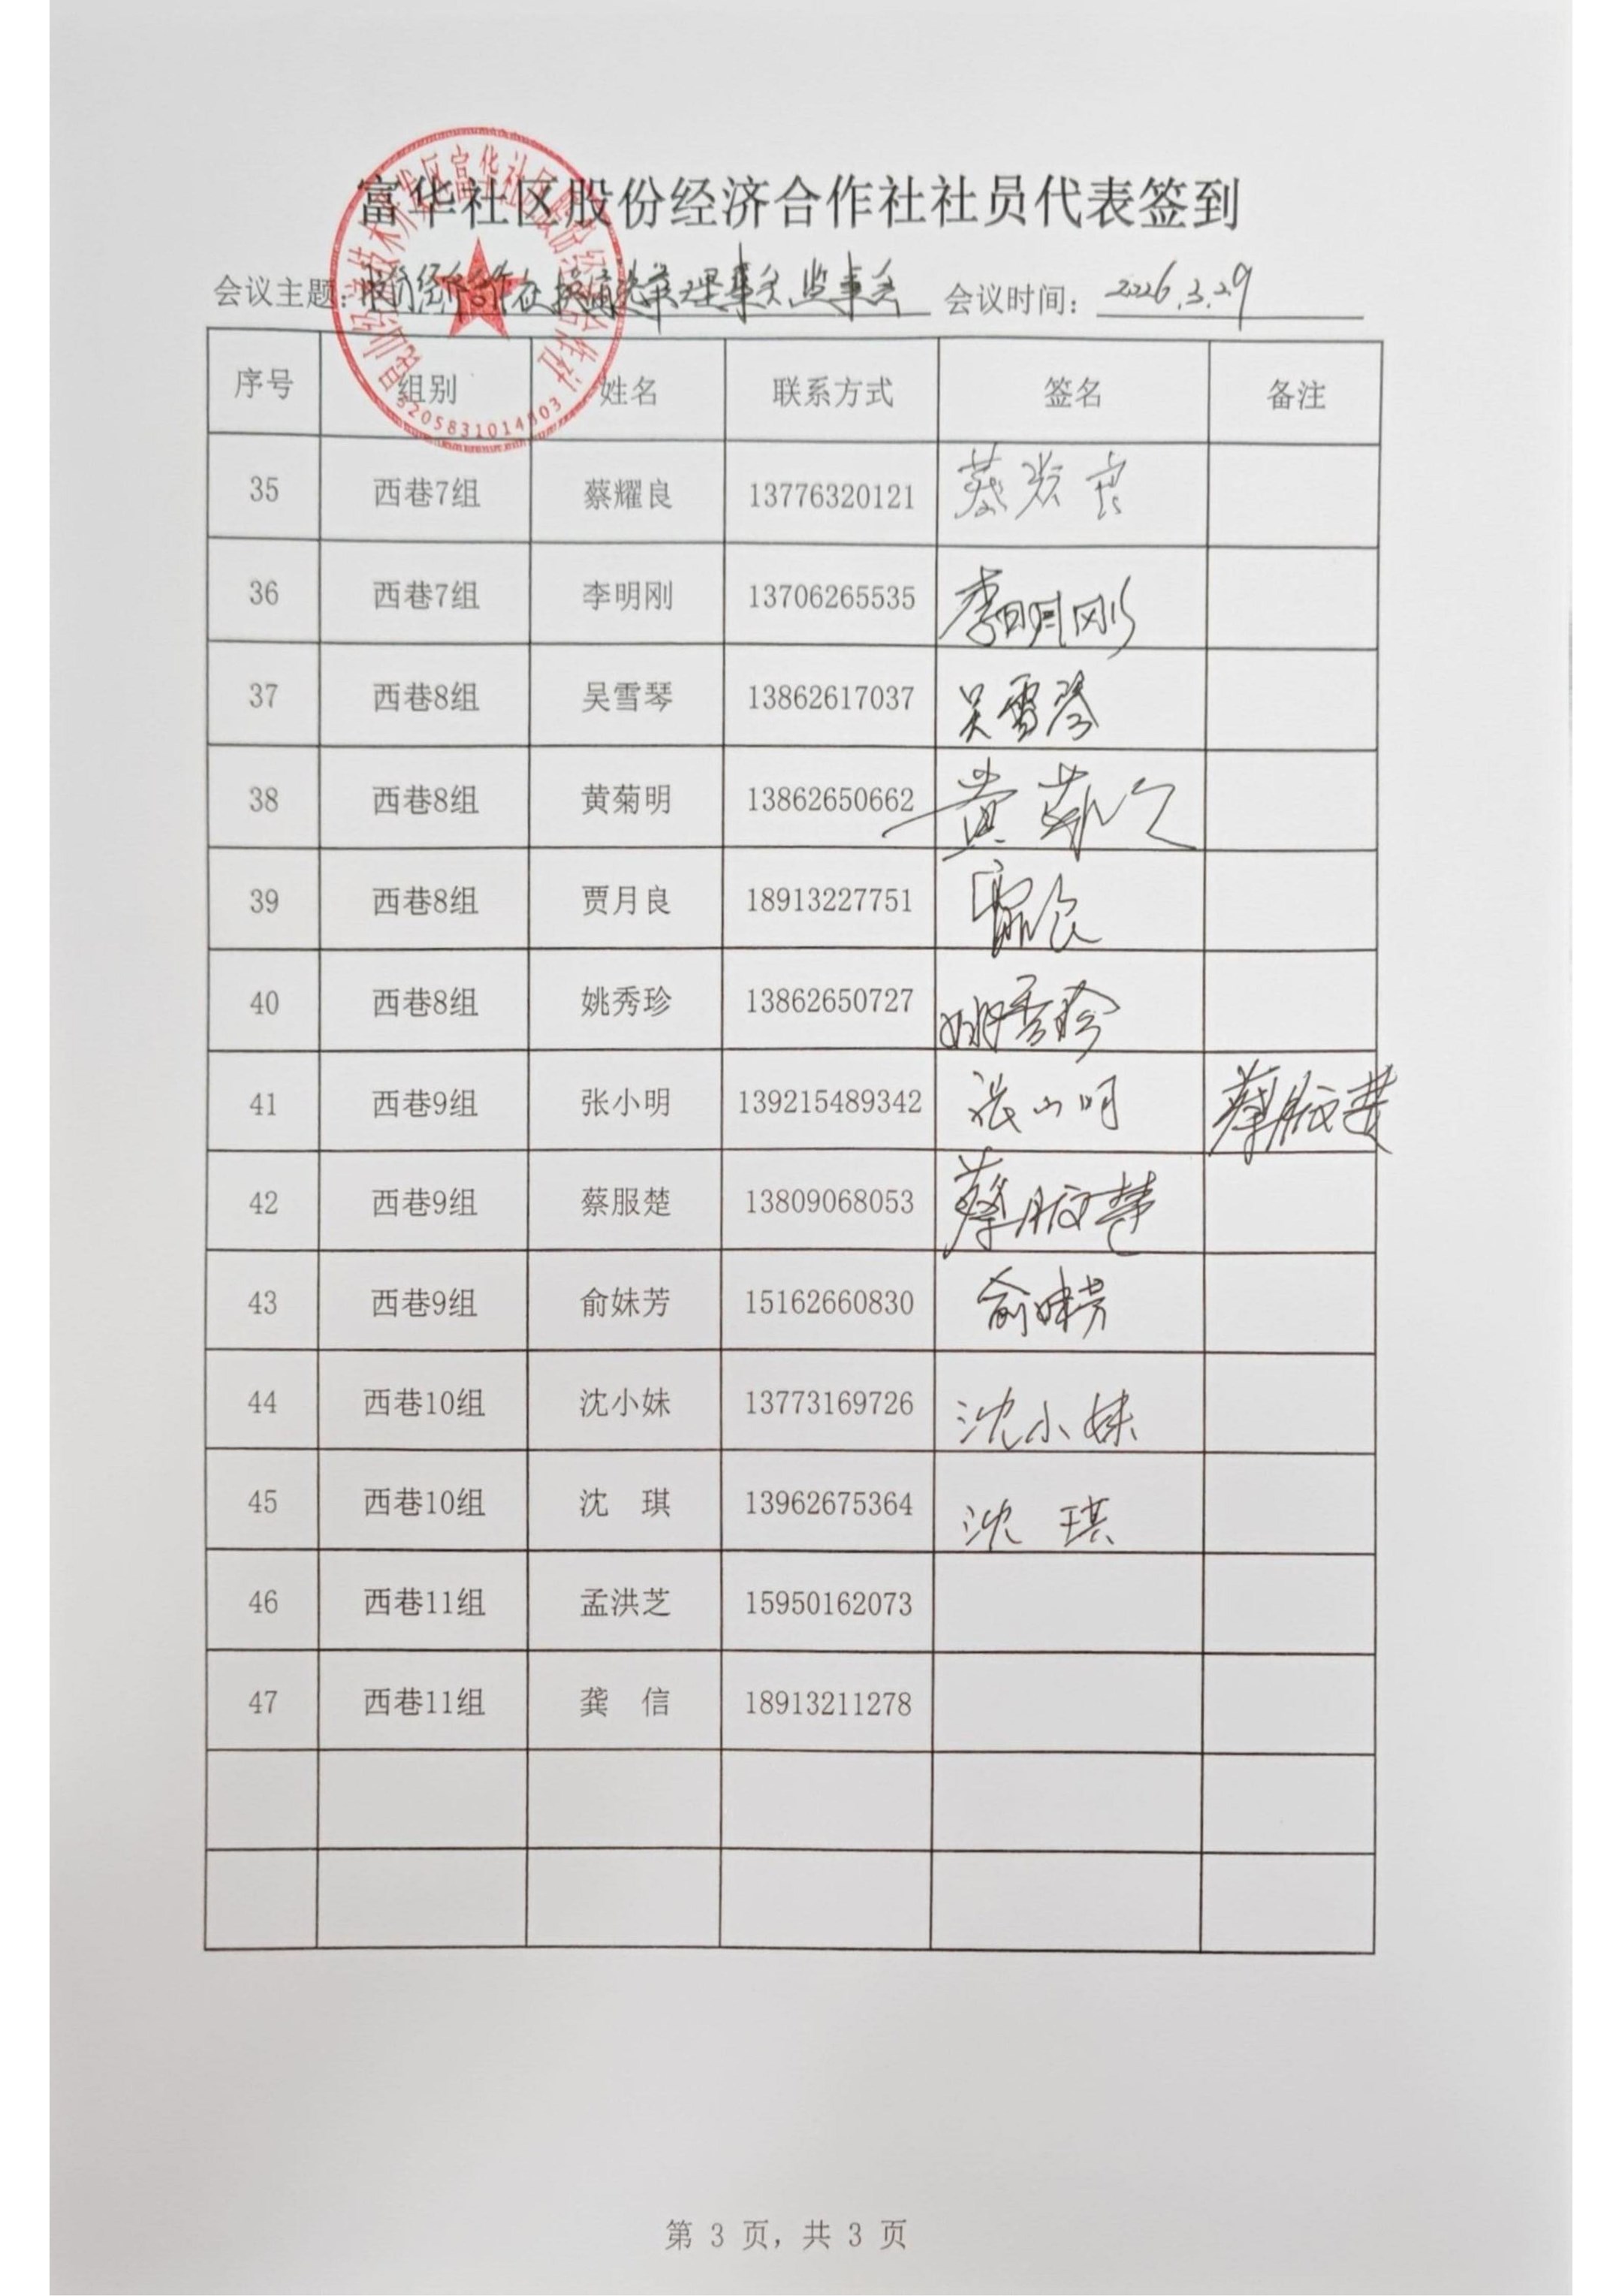 富华社区股份经济合作社社员代表签到
会议主题：股份经济合作社换届选举理事会、监事会 会议时间：2026.3.29
序号 组别 姓名 联系方式 签名 备注
35 西巷7组 蔡耀良 13776320121
36 西巷7组 李明刚 13706265535 李明刚
37 西巷8组 吴雪琴 13862617037 吴雪琴
38 西巷8组 黄菊明 13862650662 黄菊明
39 西巷8组 贾月良 18913227751
40 西巷8组 姚秀珍 13862650727 姚秀珍
41 西巷9组 张小明 139215489342 张小明 蔡服楚
42 西巷9组 蔡服楚 13809068053 蔡服楚
43 西巷9组 俞妹芳 15162660830 俞妹芳
44 西巷10组 沈小妹 13773169726 沈小妹
45 西巷10组 沈 琪 13962675364 沈琪
46 西巷11组 孟洪芝 15950162073
47 西巷11组 龚 信 18913211278
第 3 页，共 3 页